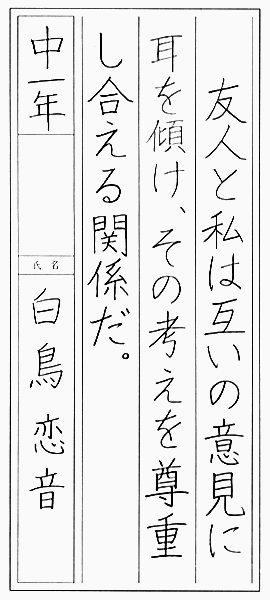 友人と私は互いの意見に
耳を傾け、その考えを尊重
し合える関係だ。
中一年
氏名
白鳥恋音